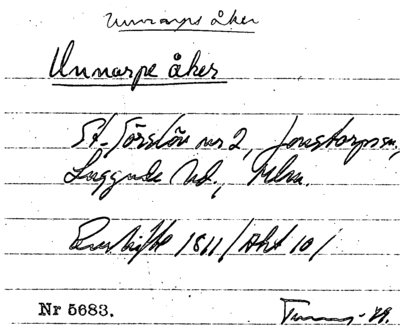 Unnarps åker
Unnarpe åker
St. Törslöv nr 2, Jonstorps sn,
Luggude hd., Mlm.
Enskifte 1811 / Akt 10 /
Nr 5683.